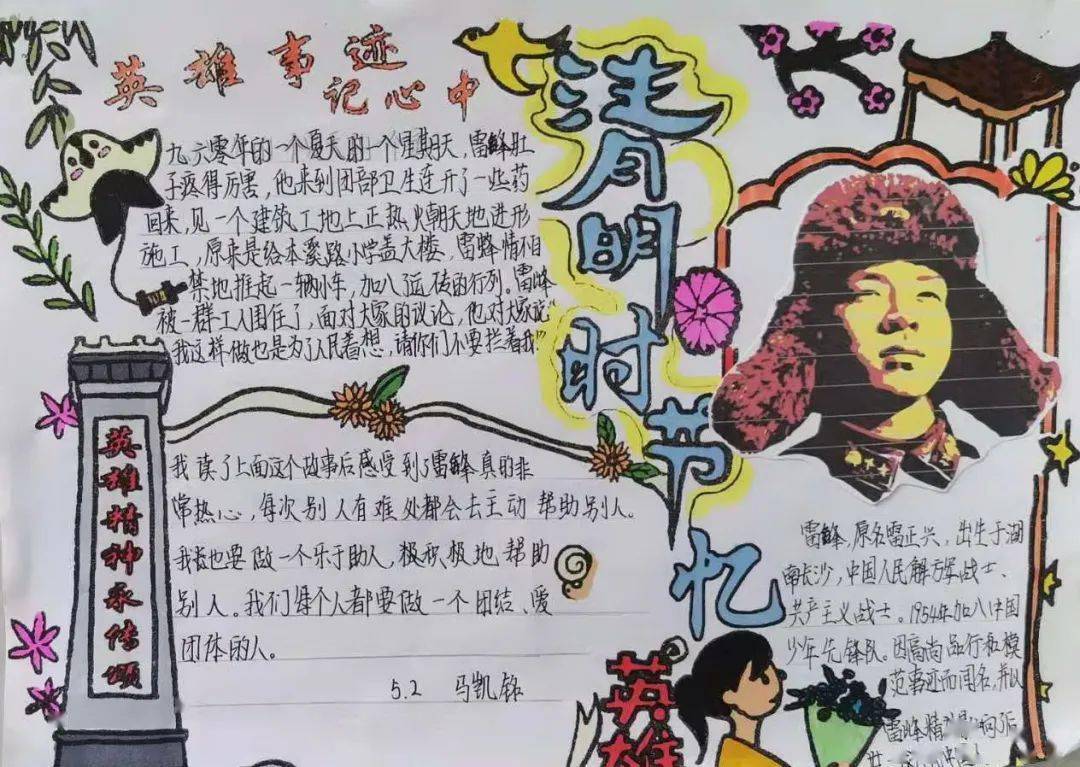 英雄事迹
记心中
九六零年的一个夏天的一个星期天，雷锋肚
子疼得厉害，他来到团部卫生连开了一些药
回来，见一个建筑工地上正热火朝天地进形
施工，原来是给本溪路小学盖大楼，雷锋情不自
禁地推起一辆小车，加入了运砖的行列。雷锋
被一群工人围住了，面对大家的议论，他对大家说“
我这样做也是为了人民着想，请你们不要拦着我”
清明时节忆
英雄精神永传颂
我读了上面这个故事后感受到了雷锋真的非
常热心，每次别人有难处都会去主动帮助别人。
我也要做一个乐于助人，极积极地帮助
别人。我们每个人都要做一个团结、爱
团体的人。
5.2 马凯铭
英雄
雷锋，原名雷正兴，出生于湖
南长沙，中国人民解放军战士、
共产主义战士。1954年加入中国
少年先锋队。因高尚品行和模
范事迹而闻名，并以
雷锋精